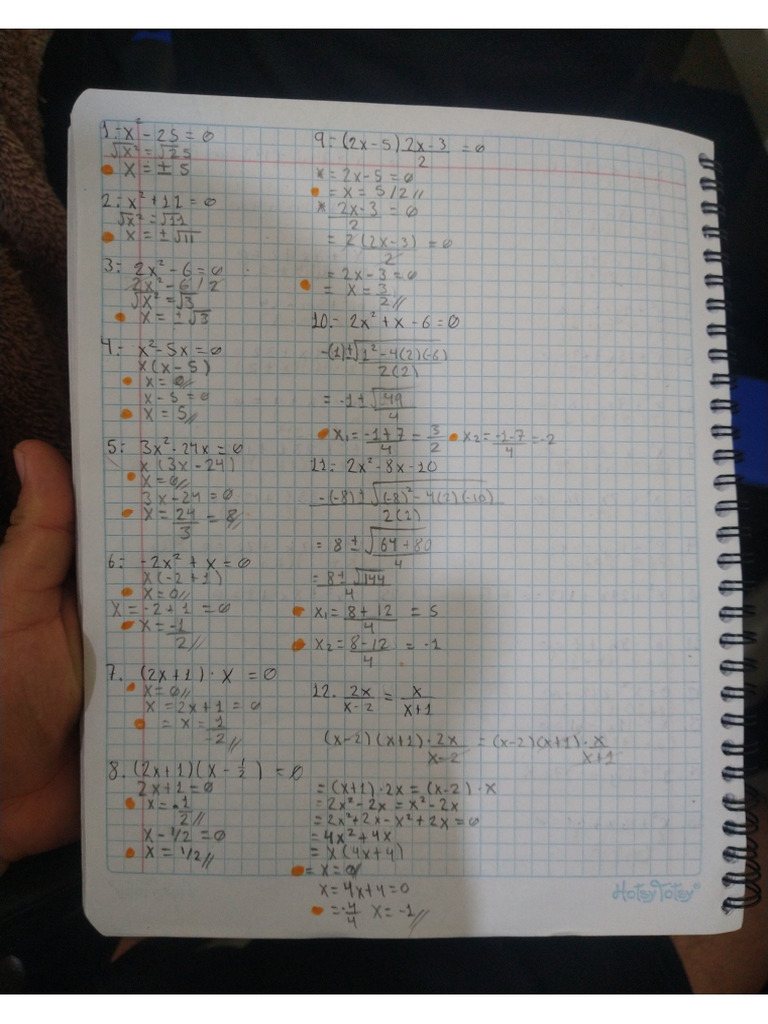 1:- x² - 25 = 0
√x² = √25
x = ± 5
2:- x² + 11 = 0
√x² = √11
x = ± √11
3:- 2x² - 6 = 0
2x² - 6 / 2
√x² = √3
x = ± √3
4:- x² - 5x = 0
x (x - 5)
x = 0//
x - 5 = 0
x = 5//
5:- 3x² - 24x = 0
x (3x - 24)
x = 0//
3x - 24 = 0
x = 24/3 = 8//
6:- -2x² + x = 0
x (-2 + 1)
x = 0//
x = -2 + 1 = 0
x = -1/2//
7. (2x + 1) · x = 0
x = 0//
x = 2x + 1 = 0
= x = 1/-2//
8. (2x + 1) (x - 1/2) = 0
2x + 1 = 0
x = -1/2//
x - 1/2 = 0
x = 1/2//
9:- (2x - 5) 2x - 3/2 = 0
* = 2x - 5 = 0
= x = 5/2//
* 2x - 3/2 = 0
= 2 (2x - 3)/2 = 0
= 2x - 3 = 0
= x = 3/2//
10.- 2x² + x - 6 = 0
-(1) ± √1² - 4(2)(-6)/2(2)
= -1 ± √49/4
x₁ = -1 + 7/4 = 3/2 x₂ = -1 - 7/4 = -2
11:- 2x² - 8x - 10
-(-8) ± √(-8)² - 4(2)(-10)/2(2)
= 8 ± √64 + 80/4
= 8 ± √144/4
x₁ = 8 + 12/4 = 5
x₂ = 8 - 12/4 = -1
12. 2x/x - 2 = x/x + 1
(x - 2) (x + 1) · 2x/x - 2 = (x - 2) (x + 1) · x/x + 1
= (x + 1) · 2x = (x - 2) · x
= 2x² - 2x = x² - 2x
= 2x² + 2x - x² + 2x = 0
= 4x² + 4x
= x (4x + 4)
= x = 0//
x = 4x + 4 = 0
= -4/4 x = -1//
HotsyTotsy®